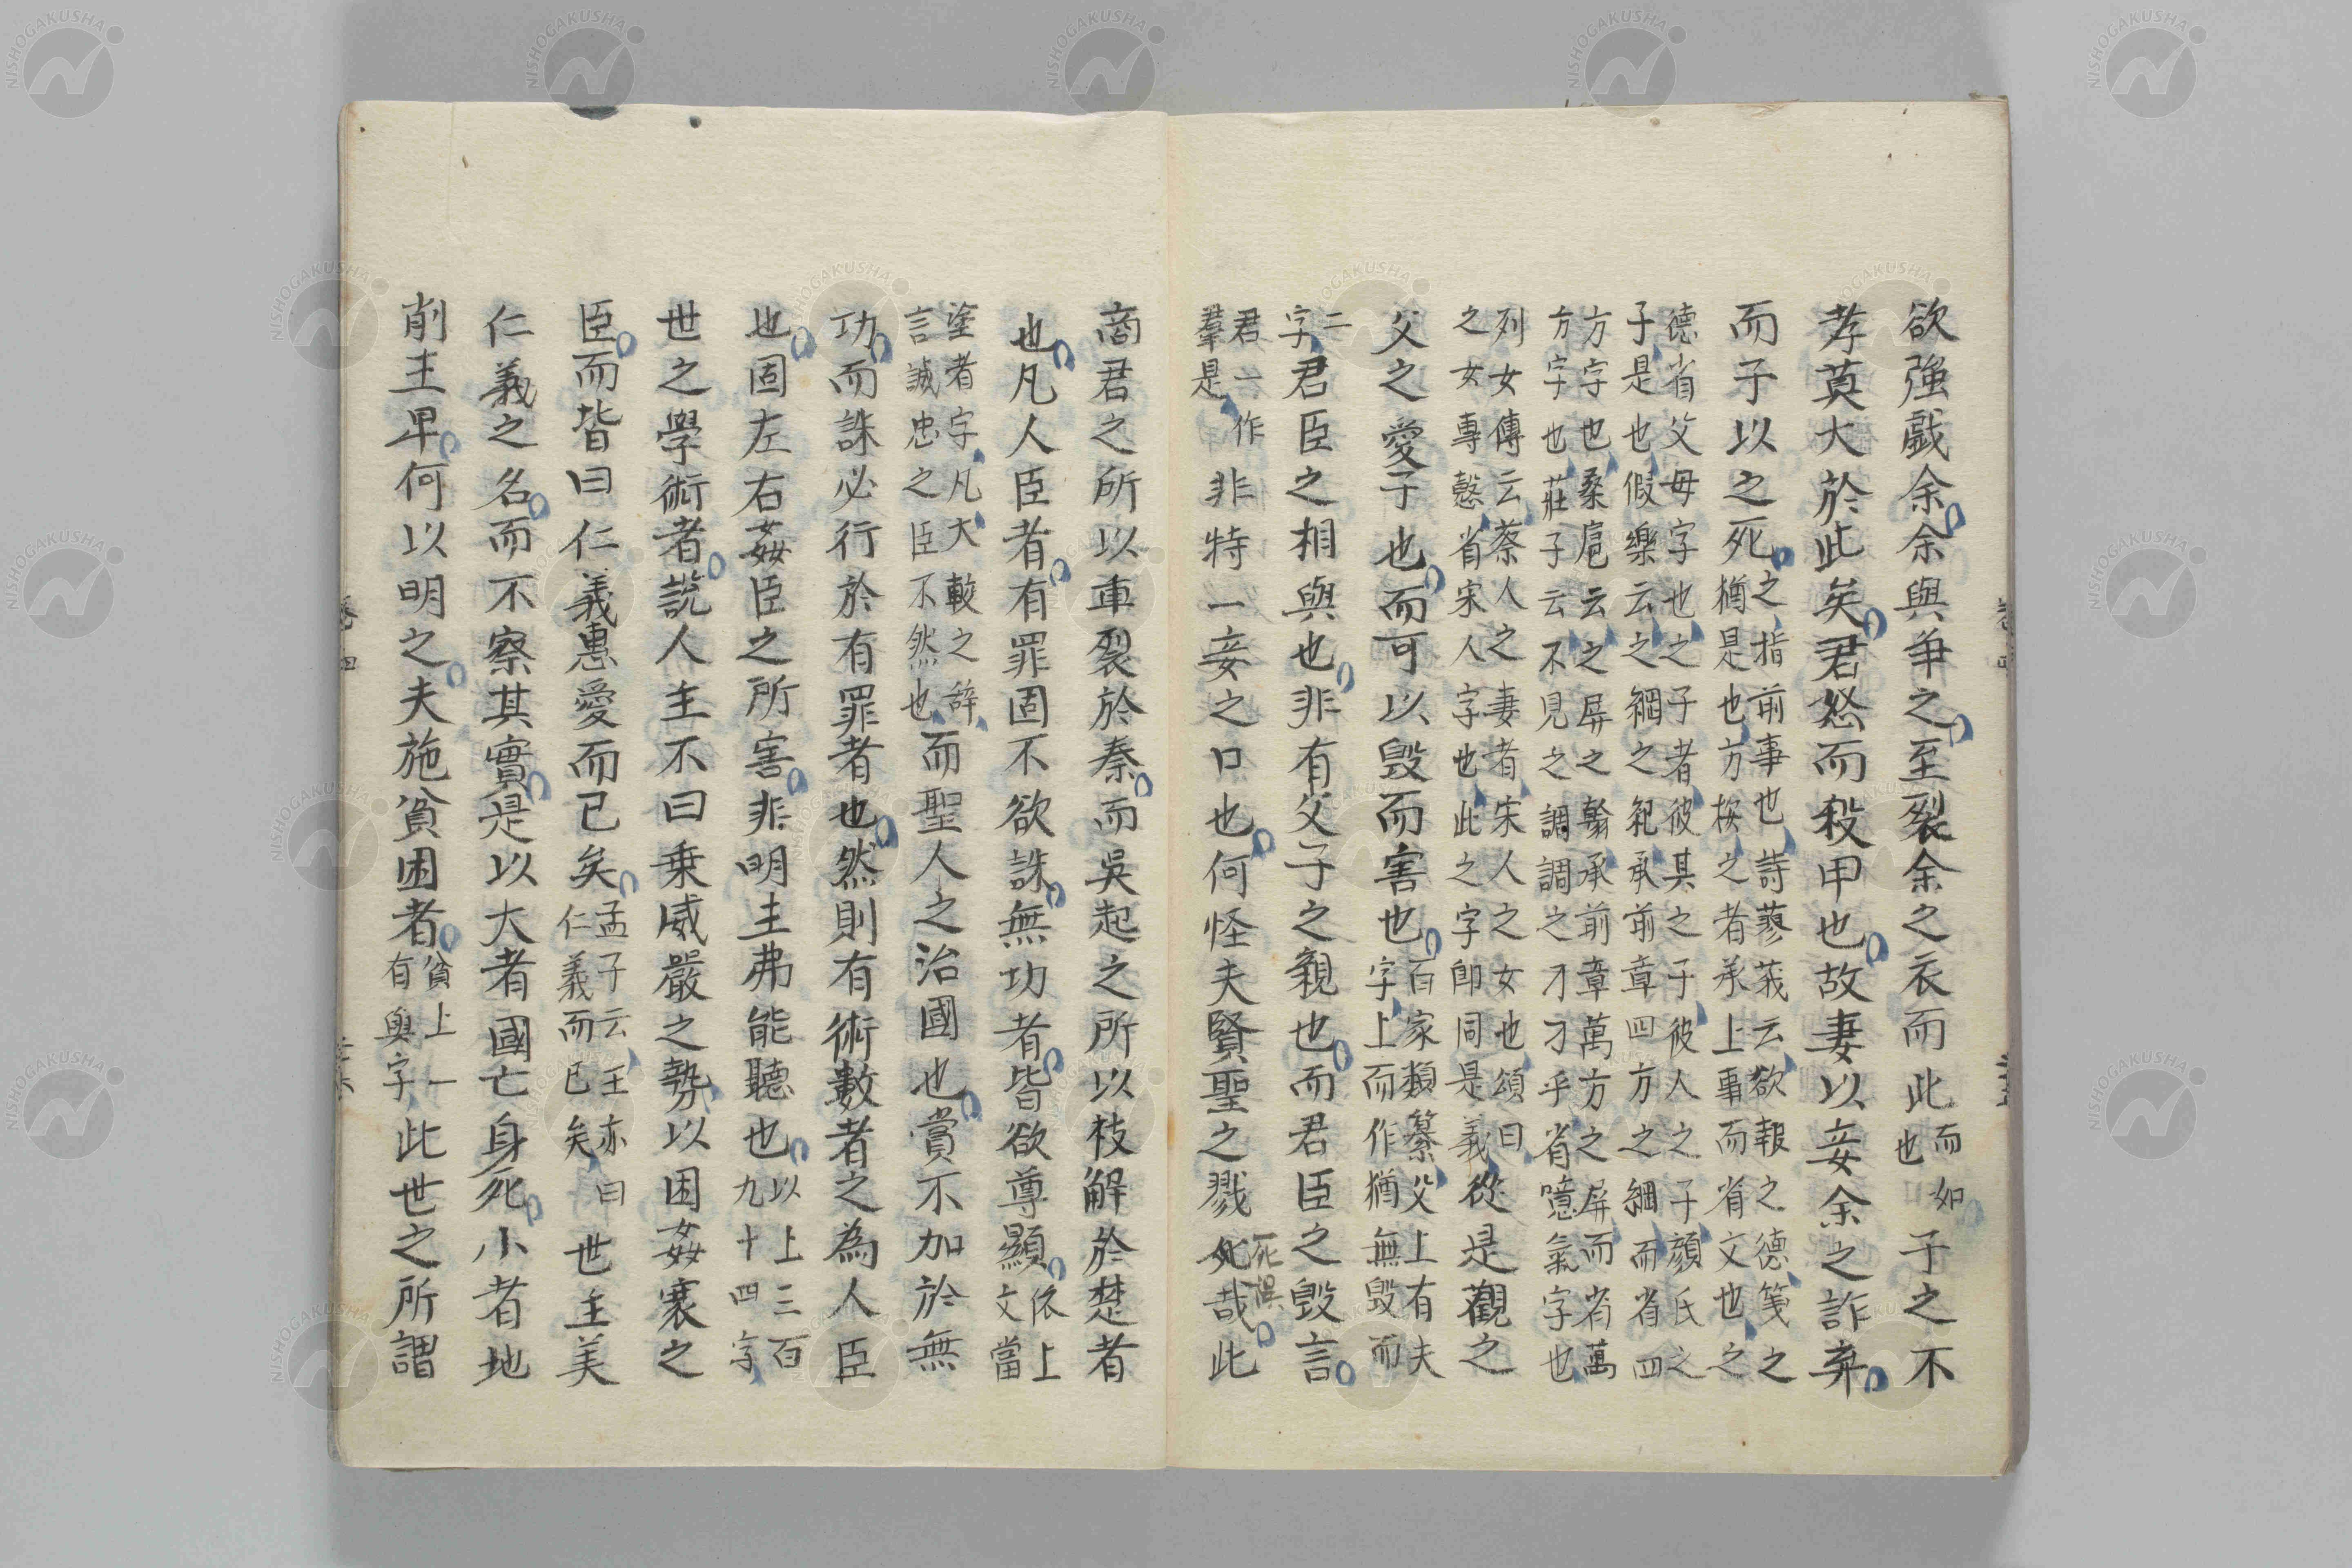 欲強戲余余與争之至裂余之衣而此而如也子之不
孝莫大於此矣君怒而殺甲也故妻以妾余之詐弃
而子以之死之指前事也詩蓼莪云欲報之德箋之
猶是也方按之者承上事而省文也之
德省父母字也之子者彼其之子彼人之子顔氏之
子是也假樂云之綱之紀承前章四方之綱而省四
方字也桑扈云之屏之翰承前章萬方之屏而省萬
方字也莊子云不見之調調之刁刁乎省噫氣字也
列女傳云蔡人之妻者宋人之女也頌曰
之女專慤省宋人字也此之字即同是義從是觀之
父之愛子也而可以毀而害也百家類纂父上有夫
字上而作猶無毀而
二字君臣之相與也非有父子之親也而君臣之毀言
君一作羣是非特一妾之口也何怪夫賢聖之戮死哉此
死誤
商君之所以車裂於秦而吳起之所以枝解於楚者
也凡人臣者有罪固不欲誅無功者皆欲尊顯依上文當
塗者字凡大較之辞
言誠忠之臣不然也而聖人之治國也賞不加於無
功而誅必行於有罪者也然則有術數者之為人臣
也固左右姦臣之所害非明主弗能聽也以上三百九十四字
世之學術者説人主不曰乗威嚴之勢以困姦衺之
臣而皆曰仁義惠愛而已矣孟子云王亦曰仁義而已矣世主美
仁義之名而不察其實是以大者國亡身死小者地
削主卑何以明之夫施貧困者貧上一有與字此世之所謂
NISHOGAKUSHA